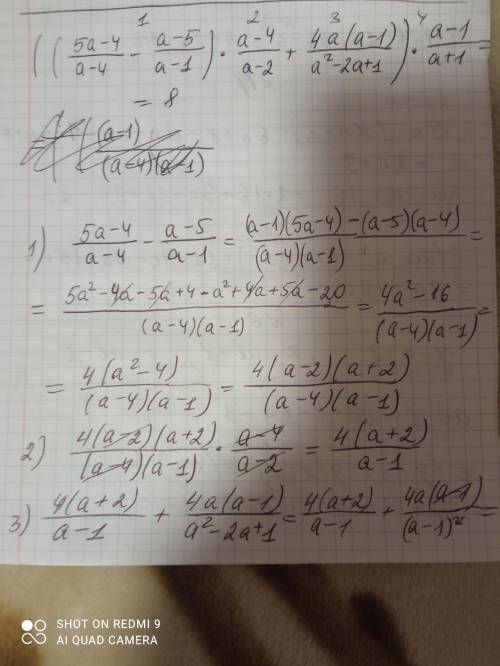 1 2 3 4
((\frac{5a-4}{a-4} - \frac{a-5}{a-1}) · \frac{a-4}{a-2} + \frac{4a(a-1)}{a^2-2a+1}) · \frac{a-1}{a+1} =
= 8
= \frac{(a-1)}{(a-4)(a-1)}
1) \frac{5a-4}{a-4} - \frac{a-5}{a-1} = \frac{(a-1)(5a-4)-(a-5)(a-4)}{(a-4)(a-1)} =
= \frac{5a^2-4a-5a+4-a^2+4a+5a-20}{(a-4)(a-1)} = \frac{4a^2-16}{(a-4)(a-1)} =
= \frac{4(a^2-4)}{(a-4)(a-1)} = \frac{4(a-2)(a+2)}{(a-4)(a-1)}
2) \frac{4(a-2)(a+2)}{(a-4)(a-1)} · \frac{a-4}{a-2} = \frac{4(a+2)}{a-1}
3) \frac{4(a+2)}{a-1} + \frac{4a(a-1)}{a^2-2a+1} = \frac{4(a+2)}{a-1} + \frac{4a(a-1)}{(a-1)^2} =
SHOT ON REDMI 9
AI QUAD CAMERA